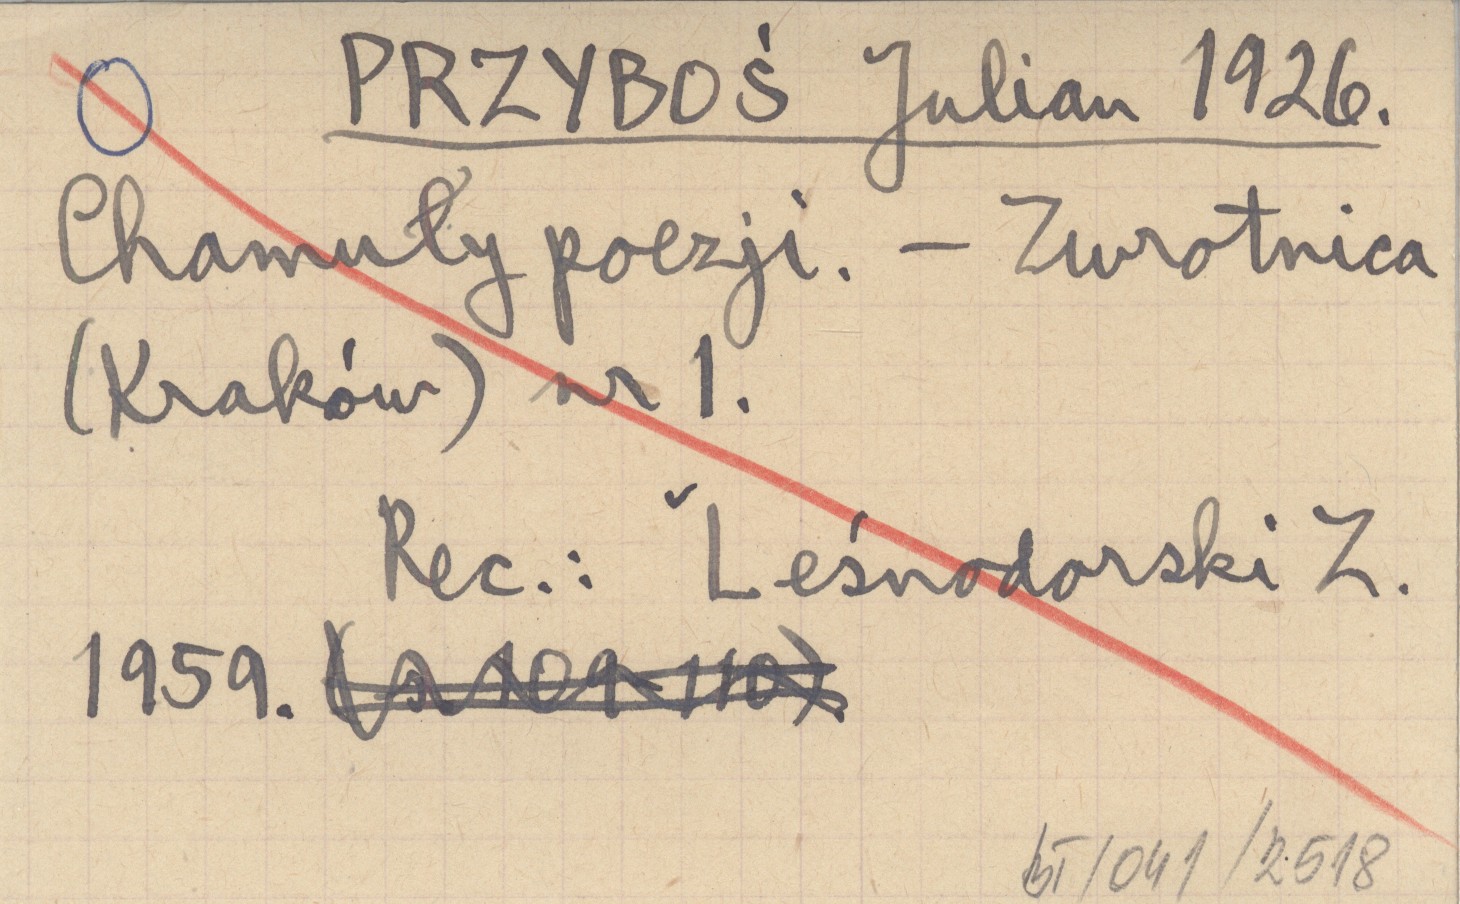 PRZYBOŚ Julian 1926.
Chamuły poezji. – Zwrotnica
(Kraków) nr 1.
Rec.: Leśnodorski Z.
1959. (s. 109-110).
/041/2518